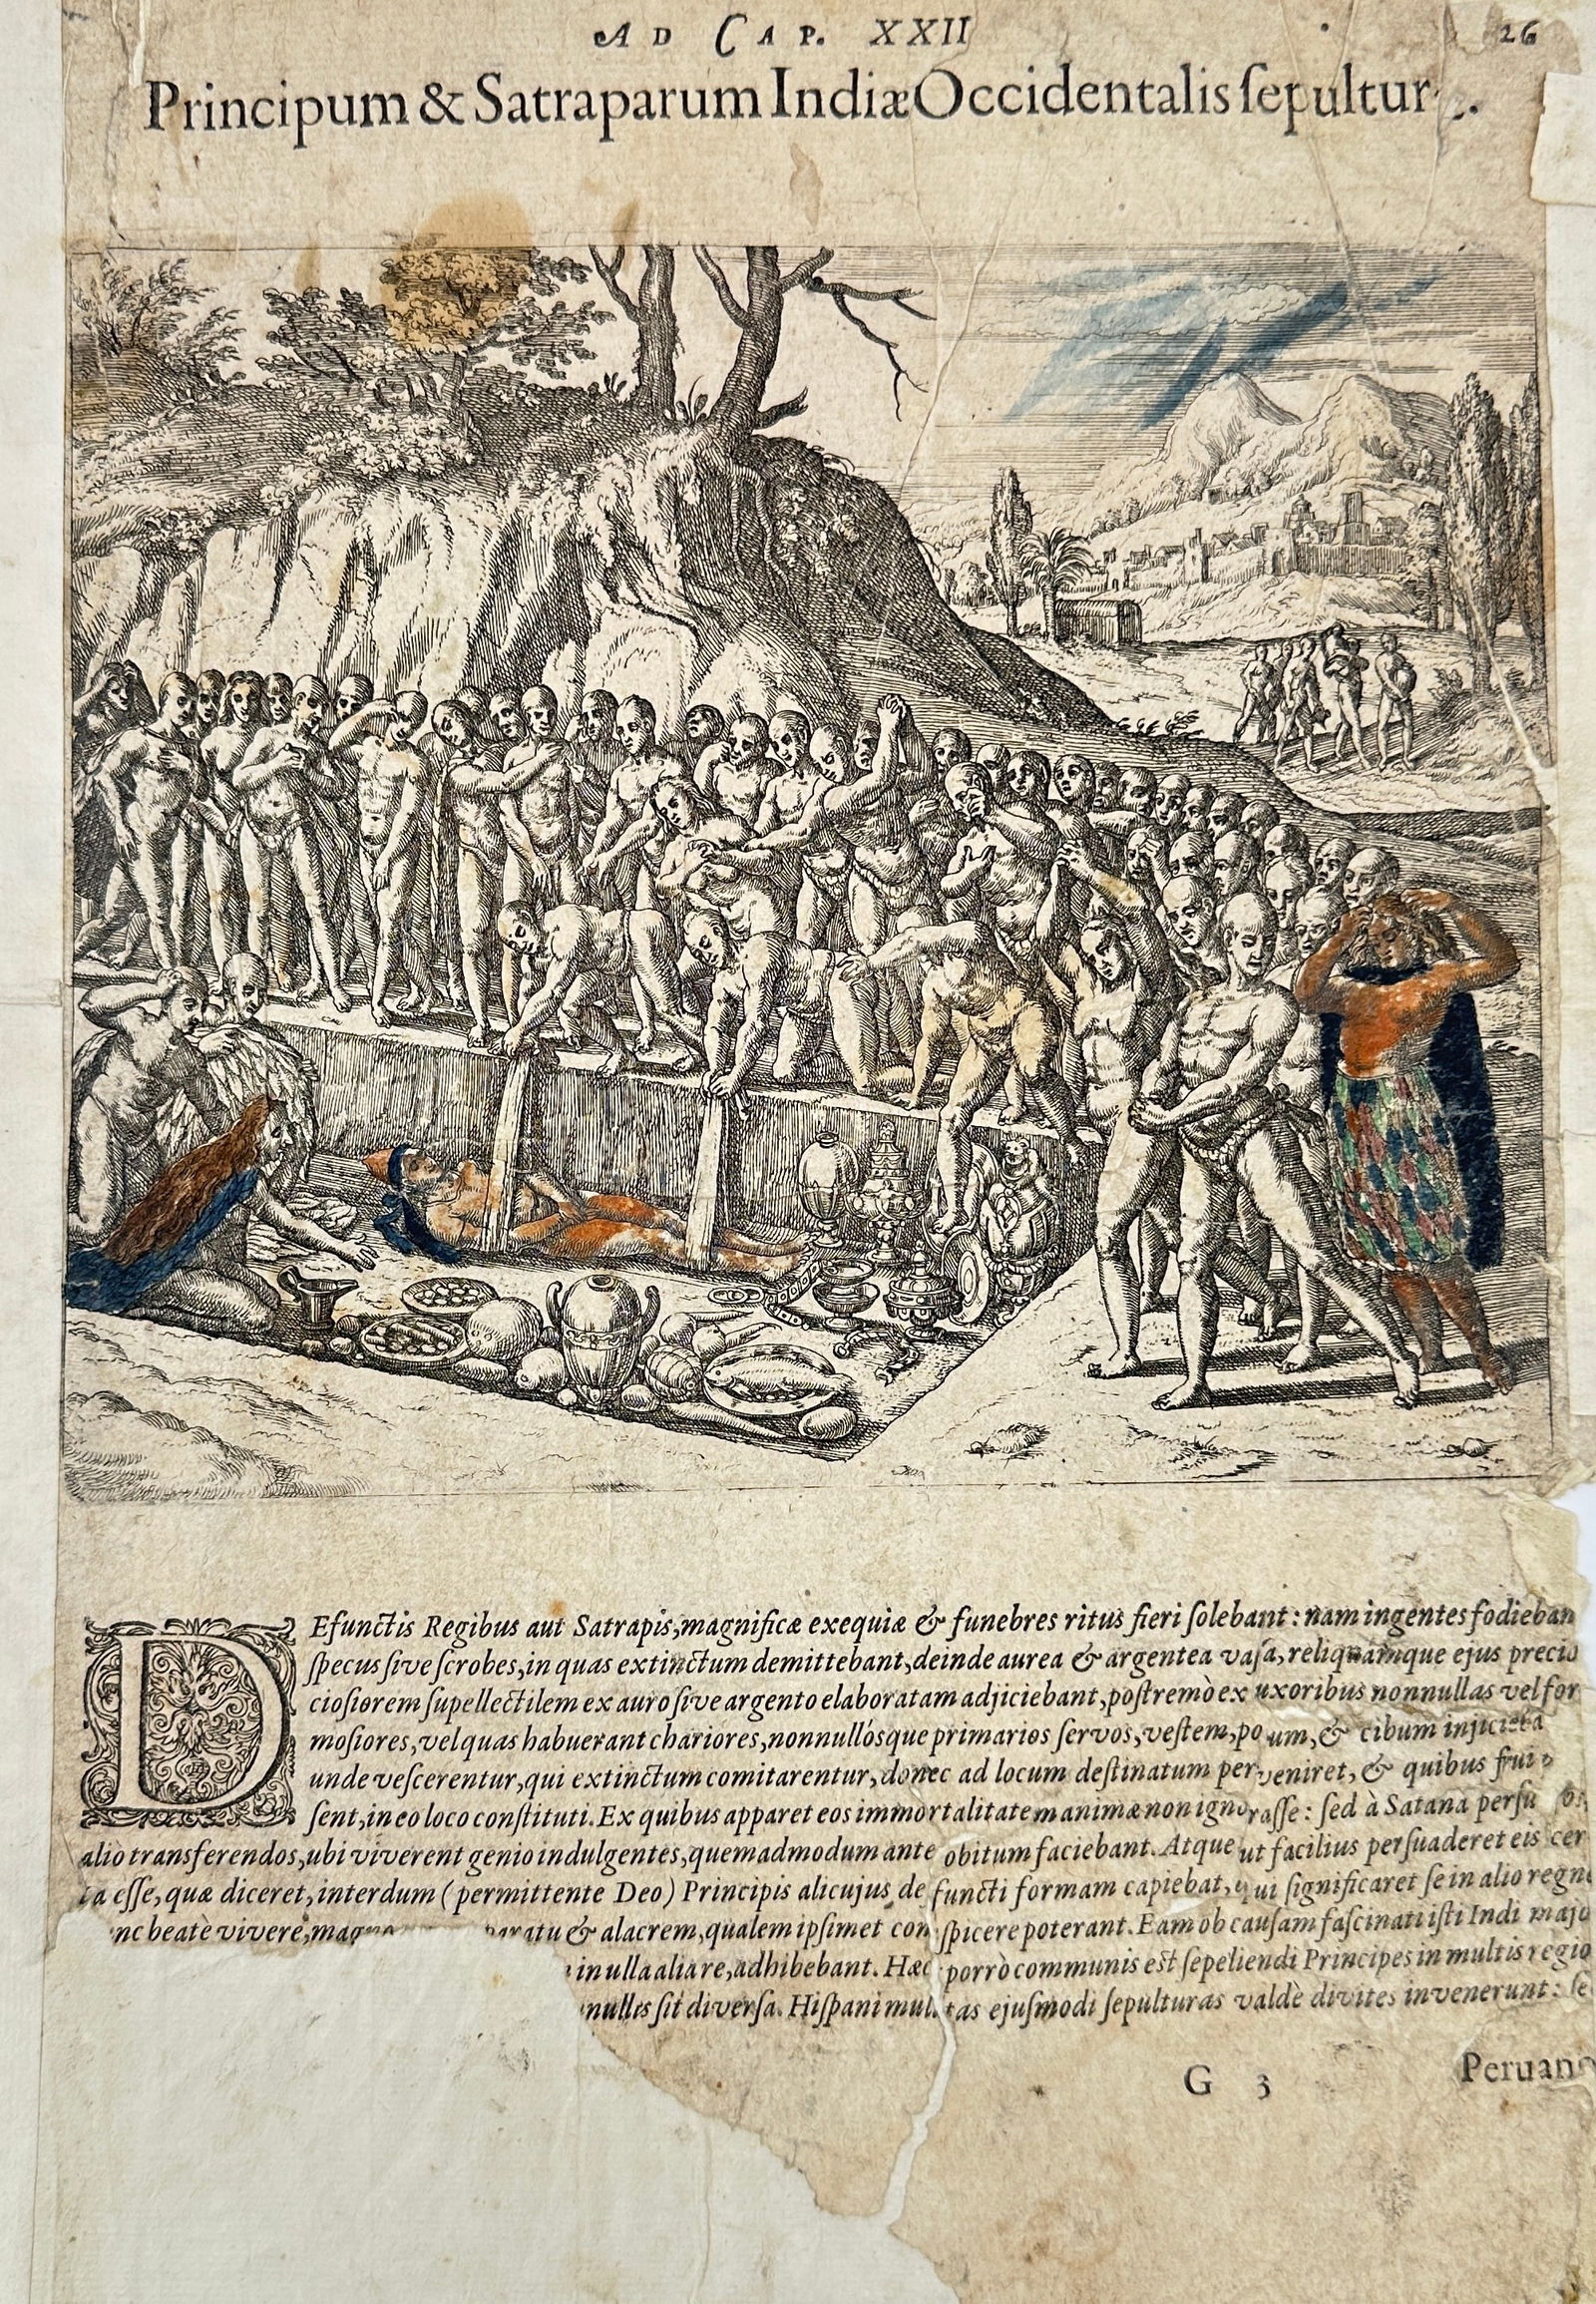 AD CAP. XXII 26
Principum & Satraparum Indiæ Occidentalis ſepultur
DEfunctis Regibus aut Satrapis, magnificæ exequiæ & funebres ritus fieri ſolebant: nam ingentes fodieban
ſpecus ſive ſcrobes, in quas extinctum demittebant, deinde aurea & argentea vaſa, reliquamque ejus precio
cioſiorem ſupellectilem ex auro ſive argento elaboratam adjiciebant, poſtremò ex uxoribus nonnullas vel for
moſiores, vel quas habuerant chariores, nonnullósque primarios ſervos, veſtem, po um, & cibum injicieba
unde veſcerentur, qui extinctum comitarentur, donec ad locum deſtinatum perveniret, & quibus frui
ſent, in eo loco conſtituti. Ex quibus apparet eos immortalitatem animæ non ignoraſſe: ſed à Satana perſu
alio transferendos, ubi viverent genio indulgentes, quemadmodum ante obitum faciebant. Atque ut facilius perſuaderet eis cer
ta eſſe, quæ diceret, interdum (permittente Deo) Principis alicujus defuncti formam capiebat, qui ſignificaret ſe in alio regno
nc beatè vivere, magno paratu & alacrem, qualem ipſimet conſpicere poterant. Eam ob cauſam faſcinati iſti Indi majo
in ulla alia re, adhibebant. Hæc porrò communis eſt ſepeliendi Principes in multis regio
nullis ſit diverſa. Hiſpani multas ejuſmodi ſepulturas valdè divites invenerunt: ſe
G 3 Peruano